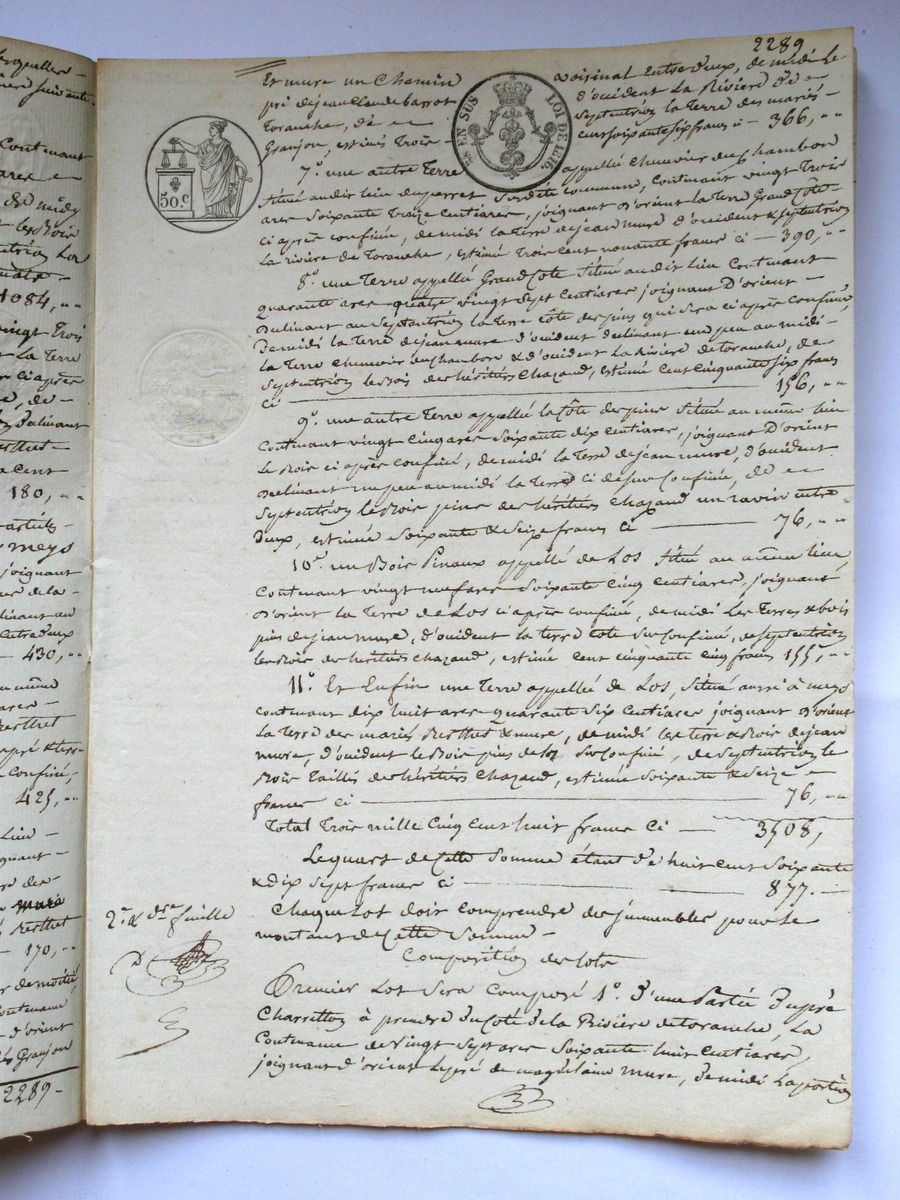 2289
Et mure un Chemin voisinal entre deux, de midi le
pré de jean Claude barrot d'occident La Rivière de
Toranche, de Septentrion la Terre des mariés
Granjon, estimés Trois cent soixante six francs ci — 366, ..
7.° une autre Terre appellée chenevier du Chambon
Situé audit lieu du perret Susdite commune, Contenant vingt Trois
ares Soixante Treize Centiares, joignant d'orient la Terre Grand Cote
ci après confinée, de midi la Terre de jean mure d'occident & septentrion
la rivière de Toranche, estimé Trois Cent nonante francs ci — 390, ..
8.° une Terre appellé Grand Cote Situé audit Lieu Contenant
quarante ares quatre vingt Sept Centiares joignant D'orient
Declinant au Septentrion la Terre Côte des pins qui sera ci après confinée,
de midi la Terre de jean mure d'occident declinant un peu au midi
la Terre Chenevier du Chambon & d'occident La Rivière de toranche, de
Septentrion les Bois des héritiers Chazaud, estimé Cent Cinquante Six francs
ci — 156, ..
9.° une autre Terre appellé la Côte des pins Situé au même lieu
Contenant vingt Cinq ares Soixante dix Centiares, joignant D'orient
Le Bois ci après confiné, de midi la Terre de jean mure, d'occident
Declinant un peu au midi la Terre ci dessus Confinée, de
Septentrion le Bois pins des héritiers Chazaud un ravin entre
deux, estimée Soixante & Seize francs Ci — 76, ..
10.° un Bois Pinaux appellé de Los Situé au même lieu
Contenant vingt neuf ares Soixante Cinq Centiares, joignant
D'orient la Terre de Los ci après confinée, de midi Les Terres & bois
pins de jean mure, d'occident la terre Cote Sus confinée, de septentrion
les Bois des héritiers Chazaud, estimé cent cinquante cinq francs 155, ..
11.° Et Enfin une Terre appellée de Los, Situé aussi à meys
contenant dix huit ares quarante Six Centiares joignant D'orient
la Terre des mariés Berthet & mure, de midi les terre & Bois de jean
mure, d'occident le Bois pins de Los Sus Confiné, de Septentrion le
Bois Taillis des héritiers Chazaud, estimée Soixante & Seize
francs ci — 76, ..
Total Trois mille Cinq Cent huit francs ci — 3508,
Le quart de Cette Somme étant de huit cent Soixante
& dix Sept francs ci — 877.
Chaque Lot doit comprendre des immeubles pour le
montant de Cette Somme.
Composition des lots
Premier Lot Sera Composé 1°. d'une Partie du pré
Charretton à prendre du Coté de la Rivière de toranche, La
Contenance de Vingt Sept ares Soixante huit Centiares,
joignant d'orient le pré de magdelaine mure, de midi La portion
2.e & dre feuille
50.c
EN SUS
LOI DE 1816.
1084, ..
180, ..
meys
joignant
430, ..
425, ..
170, ..
Granjon
2289